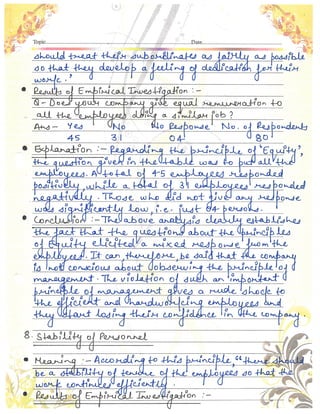 Topic Date
should treat their subordinates as fairly as possible
so that they develop a feeling of dedication for their
work.'
• Results of Empirical Investigation :-
Q- Does your company give equal remuneration to
all the employees doing a similar job?
Ans- Yes No No Response No. of Respondents
45 31 04 80
• Explanation :- Regarding the principle of 'Equity',
the question given in the table was to put all the
employees. A total of 45 employees responded
positively, while a total of 31 employees responded
negatively. Those who did not give any response
was significantly low, i.e. just 04 persons.
• Conclusion :- The above analysis clearly establishes
the fact that the questions about the principles
of Equity elicited a mixed response from the
employees. It can, therefore, be said that the company
is not concious about observing the principle of
management. The violation of such an important
principle of management gives a rude shock to
the efficient and hardworking employees and
they start losing their confidence in the company.
8. Stability of Personnel
• Meaning :- According to this principle, "there should
be a stability of tenure of the employees so that the
work continues efficiently.
• Results of Empirical Investigation :-